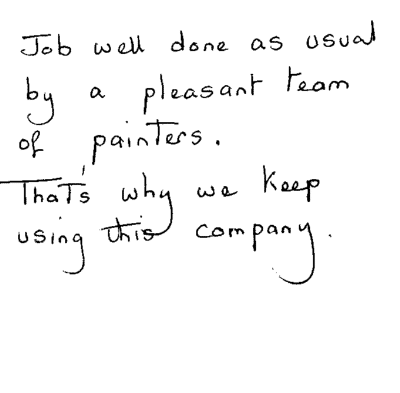 Job well done as usual
by a pleasant team
of painters.
That's why we keep
using this company.